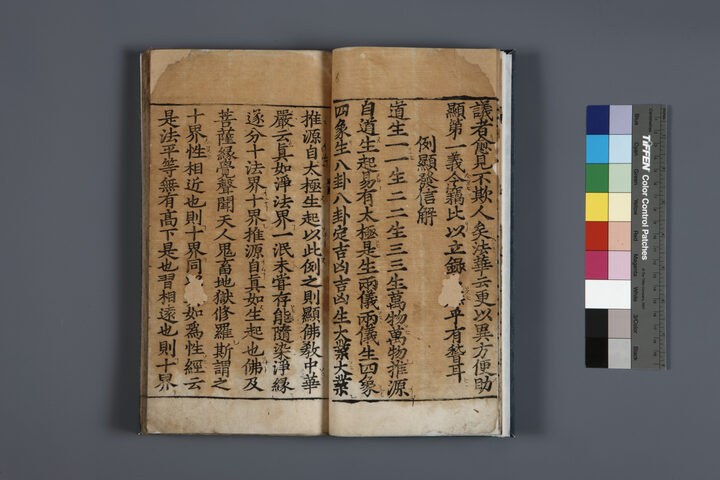 議者愈見不欺人矣法華云更以異方便助
顯第一義今竊此以立錄 乎有誓耳
例顯發信解
道生一一生二二生三三生萬物萬物推源
自道生起易有太極是生兩儀兩儀生四象
四象生八卦八卦定吉凶吉凶生大業大業
推源自太極生起以此例之則顯佛教中華
嚴云真如淨法界一泯未嘗存能隨染淨緣
遂分十法界十界推源自真如生起也佛及
菩薩緣覺聲聞天人鬼畜地獄修羅斯謂之
十界性相近也則十界同 如爲性經云
是法平等無有高下是也習相遠也則十界
TIFFEN Color Control Patches
Blue
Cyan
Green
Yellow
Red
Magenta
White
3/Color
Black